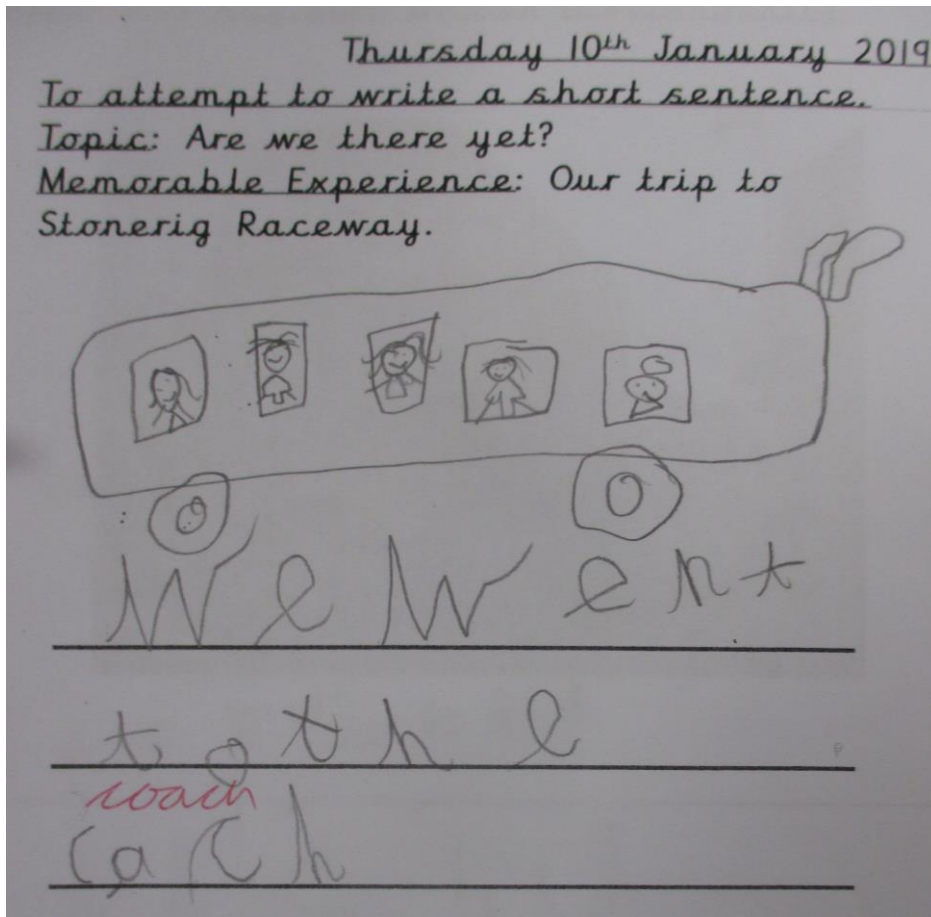 Thursday 10th January 2019
To attempt to write a short sentence.
Topic: Are we there yet?
Memorable Experience: Our trip to
Stonerig Raceway.
We went
to the
coach
cach